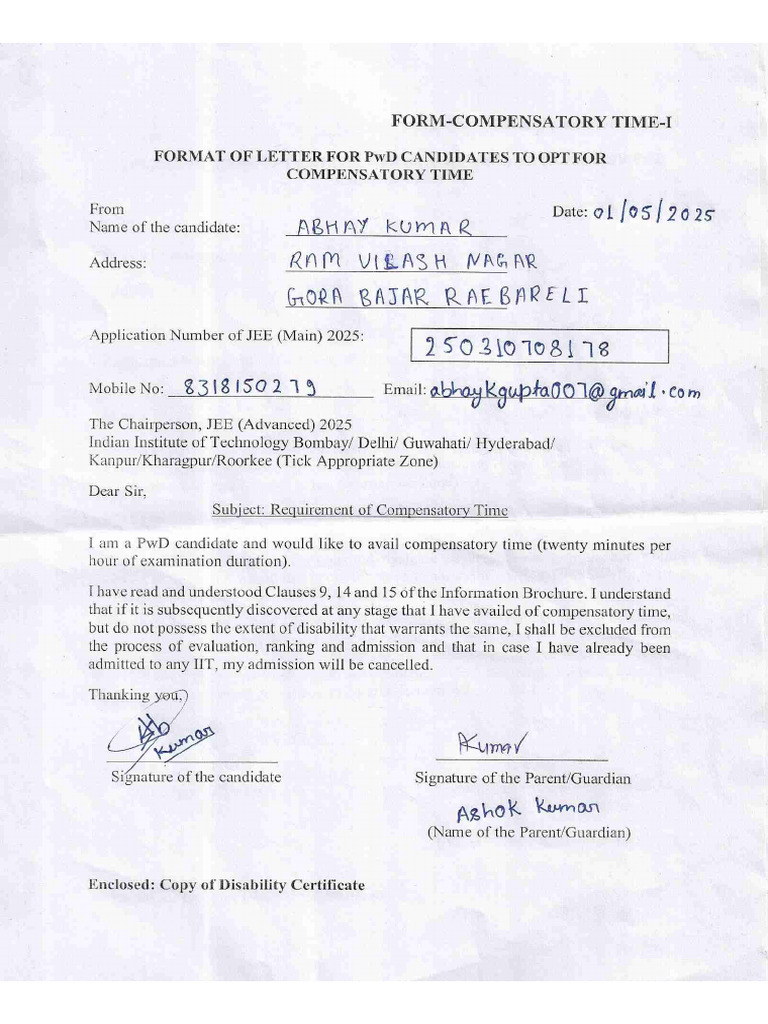 FORM-COMPENSATORY TIME-I
FORMAT OF LETTER FOR PwD CANDIDATES TO OPT FOR
COMPENSATORY TIME
From
Date: 01/05/2025
Name of the candidate: ABHAY KUMAR
Address: RAM VILASH NAGAR
GORA BAJAR RAEBARELI
Application Number of JEE (Main) 2025: 250310708178
Mobile No: 8318150279 Email: abhaykgupta007@gmail.com
The Chairperson, JEE (Advanced) 2025
Indian Institute of Technology Bombay/ Delhi/ Guwahati/ Hyderabad/
Kanpur/Kharagpur/Roorkee (Tick Appropriate Zone)
Dear Sir,
Subject: Requirement of Compensatory Time
I am a PwD candidate and would like to avail compensatory time (twenty minutes per
hour of examination duration).
I have read and understood Clauses 9, 14 and 15 of the Information Brochure. I understand
that if it is subsequently discovered at any stage that I have availed of compensatory time,
but do not possess the extent of disability that warrants the same, I shall be excluded from
the process of evaluation, ranking and admission and that in case I have already been
admitted to any IIT, my admission will be cancelled.
Thanking you,
Kumar
AKumar
Signature of the candidate
Signature of the Parent/Guardian
Ashok Kumar
(Name of the Parent/Guardian)
Enclosed: Copy of Disability Certificate